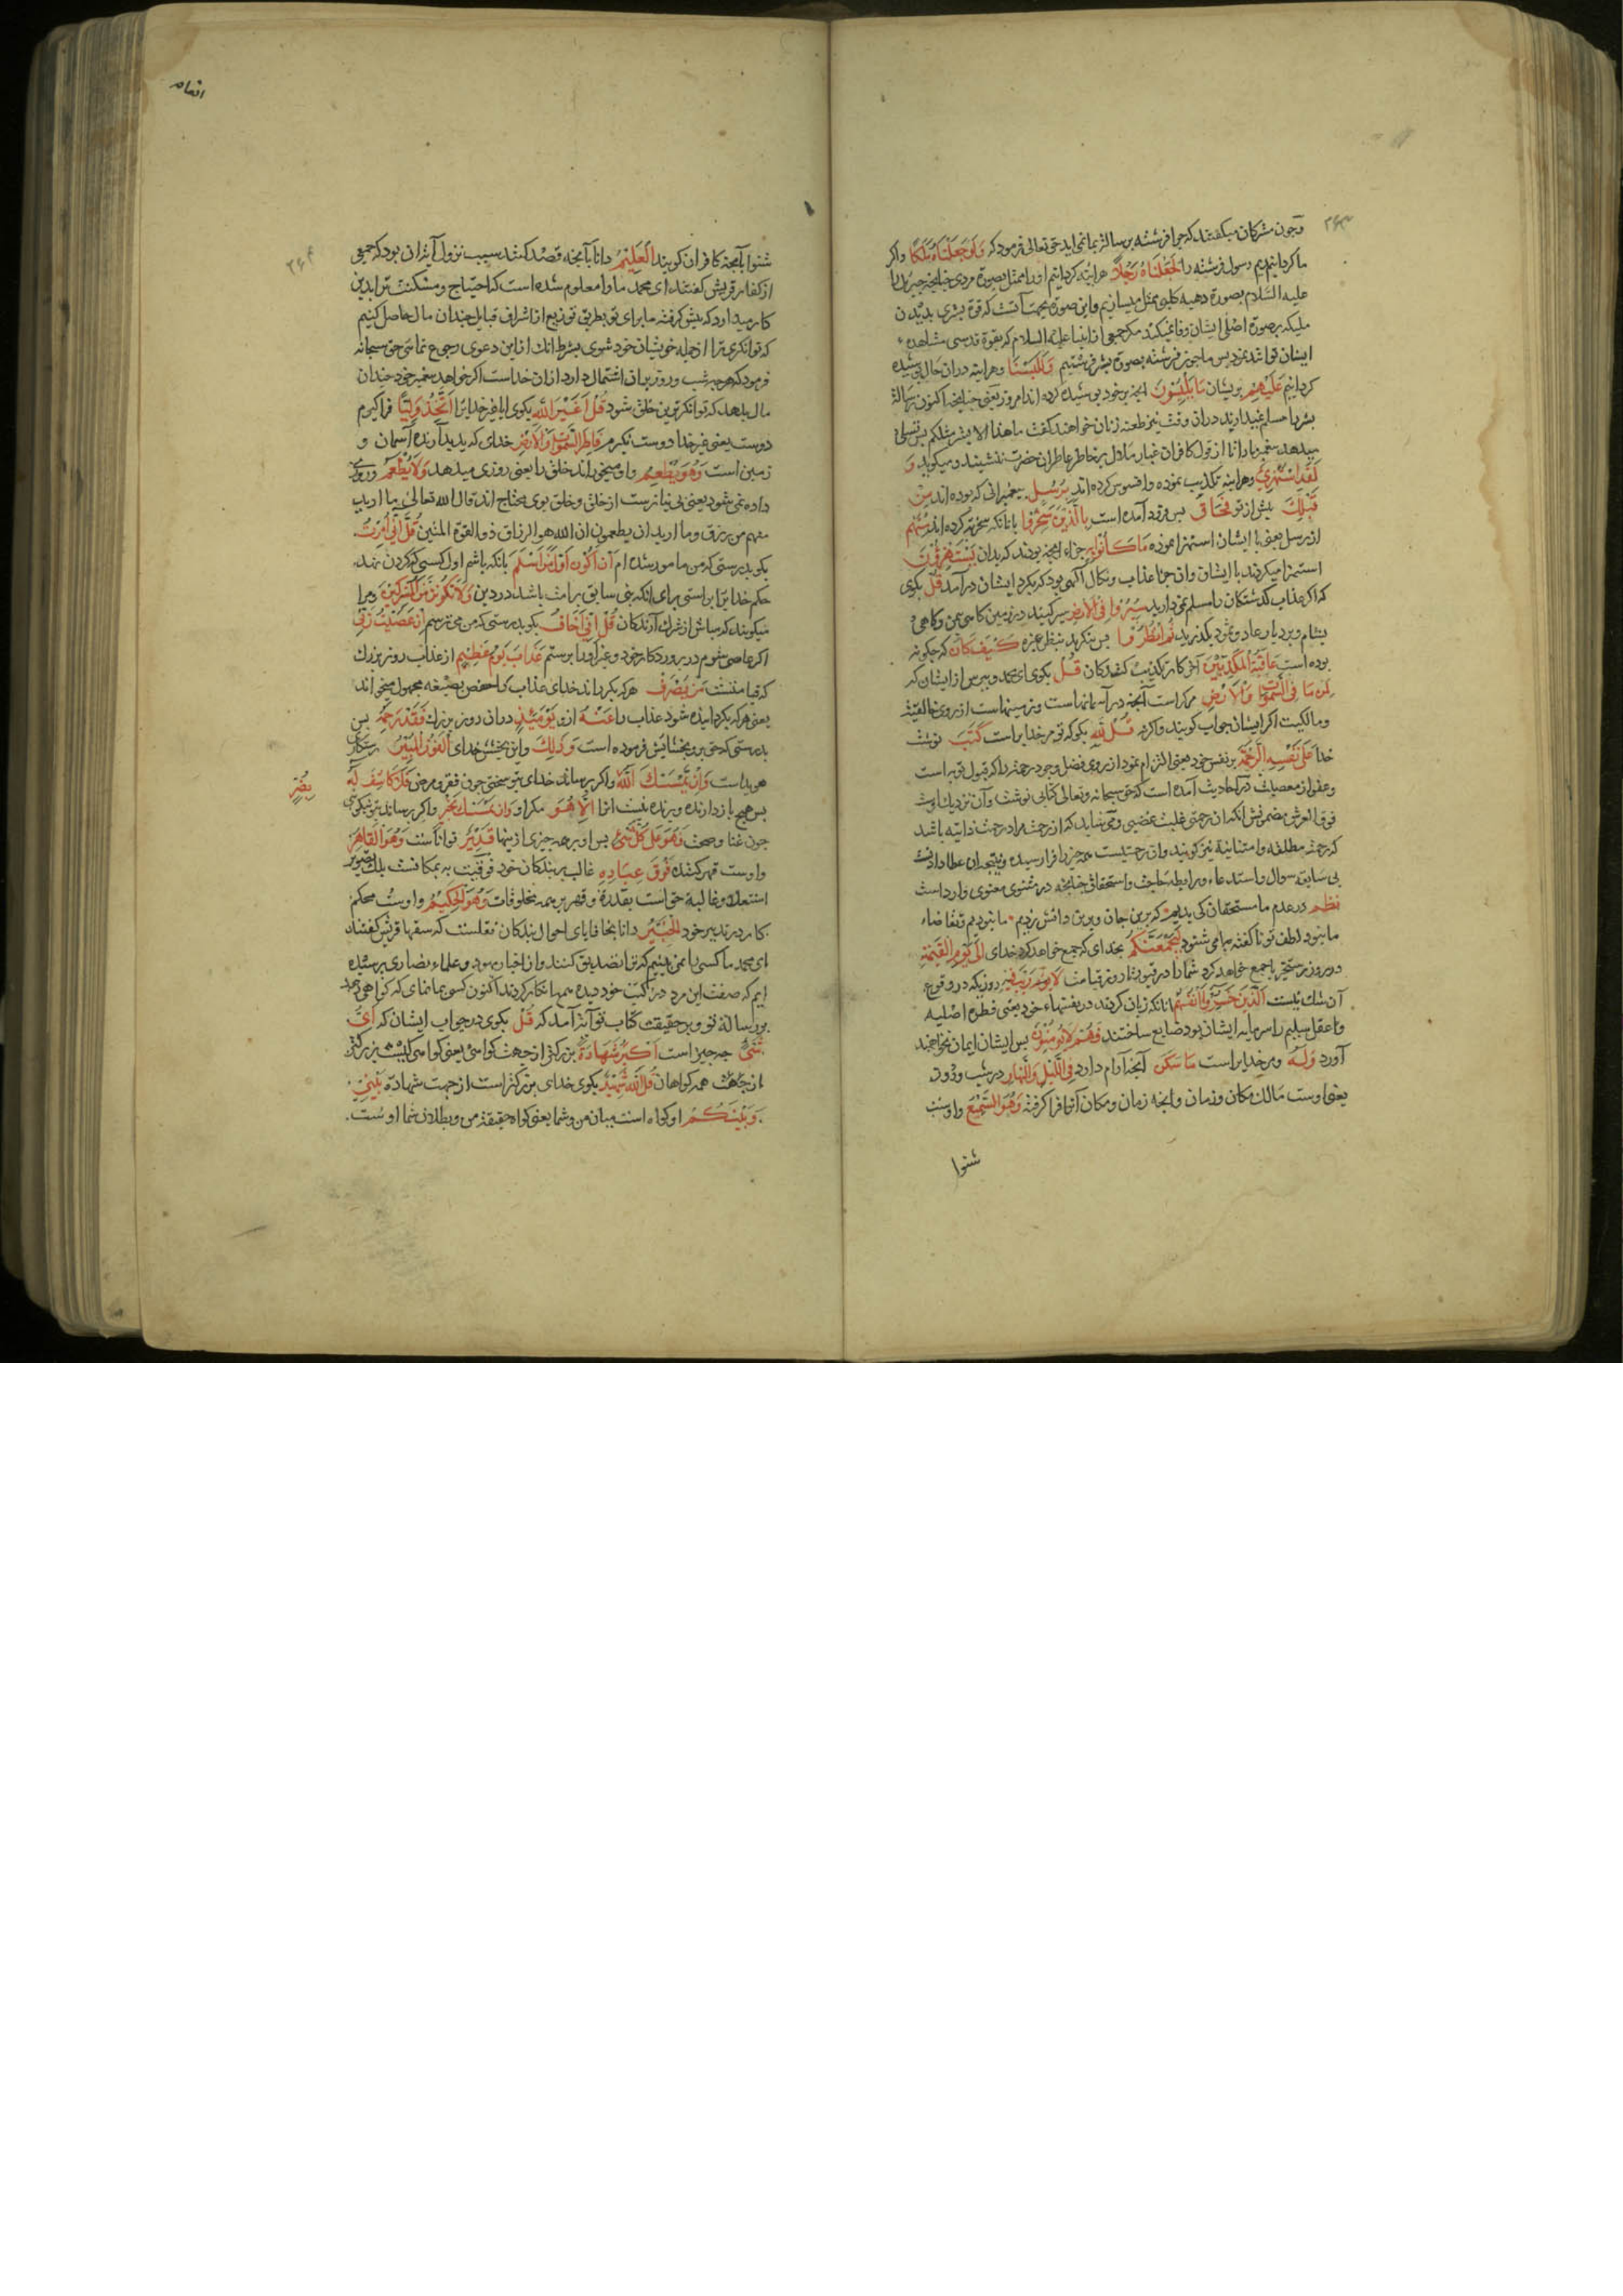 ۲۶۳
و چون مشرکان میکفتند که چرا فرشته برسالة بما نمی اید حق تعالی فرمود که وَلَوْ جَعَلْنَاهُ مَلَكًا واکر
ما کردانیم رسول فرشته را لَجَعَلْنَاهُ رَجُلًا هراینه کردانیم اورا ممثل بصورة مردی چنانچه جبرئیل را
علیه السلام بصورة دحیه کلبی ممثل میسازیم واین صورة بجهت آنست که قوة بشری بدیدن
ملیکه بصورة اصلی ایشان وفا نمیکند مکر جمعی از انبیا علیه السلام که بقوة قدسی مشاهده
ایشان توانند نمود پس ما چون فرشته بصورة بشر فرستیم وَلَلَبَسْنَا وهراینه دران حال پوشیده
کردانیم عَلَيْهِمْ بریشان مَا يَلْبِسُونَ انچه برخود پوشیده کرده اند امروز یعنی چنانچه اکنون رسالة
بشر را مسلم نمیدارند دران وقت نیز طعنه زنان خواهند کفت ما هذا الا بشر مثلکم پس تسلی
میدهد پیغمبر را تا از قول کافران غبار ملال برخاطر عاطر ان حضرت ننشیند ومیکوید وَ
لَقَدِ اسْتُهْزِئَ وهراینه تکذیب نموده وافسوس کرده اند بِرُسُلٍ بپیغمبرانی که بوده اند مِنْ
قَبْلِكَ پیش از تو فَحَاقَ پس فرود آمده است بِالَّذِينَ سَخِرُوا بانانکه سخریه کرده اند مِنْهُمْ
از رسل یعنی با ایشان استهزا نموده مَا كَانُوا بِهِ جزاء انچه بودند که بدان يَسْتَهْزِؤُنَ
استهزا میکردند با ایشان وان جزا عذاب ونکال الهی بود که بکرد ایشان درآمد قُلْ بکوی
که اکر عذاب کذشتکان را مسلم نمی دارید سِيرُوا فِي الْأَرْضِ سیر کنید در زمین کاهی بیمن وکاهی
بشام وبر دیار عاد وثمود بکذرید ثُمَّ انْظُرُوا پس بنکرید بنظر عبره كَيْفَ كَانَ که چکونه
بوده است عَاقِبَةُ الْمُكَذِّبِينَ آخر کار تکذیب کنندکان قُلْ بکوی ای محمد وبپرس از ایشان که
لِمَنْ مَا فِي السَّمٰوَاتِ وَالْأَرْضِ مر کراست آنچه در آسمانهاست وزمینهاست از روی خالقیت
ومالکیت اکر ایشان جواب کویند واکرنه قُلْ لِلّٰهِ بکو که تو مر خدایراست كَتَبَ نوشت
خدا عَلَى نَفْسِهِ الرَّحْمَةَ بر نفس خود یعنی التزام نمود از روی فضل وجود رحمة را که قبول توبه است
وعفو از معصیات در احادیث آمده است که حق سبحانه وتعالی کتابی نوشت وآن نزدیک اوست
فوق العرش مضمونش انکه ان رحمتی غلبت غضبی ومی شاید که از رحمت مراد رحمت ذاتیه باشد
که رحمت مطلقه وامتنانیه نیز کویند وان رحمتیست همه چیز را فرا رسیده ونتیجه ان عطا دادنست
بی سابقه سوال واستدعاء وبرابطه حاجت واستحقاق چنانچه در مثنوی معنوی وارد است
نظم در عدم ما مستحقان کی بدیم که برین جان وبرین دانش زدیم ما نبودیم وتقاضاء
ما نبود لطف تو ناکفته ما می شنود لَيَجْمَعَنَّكُمْ بخدای که جمع خواهد کرد خدای إِلَى يَوْمِ الْقِيٰمَةِ
در روز رستخیز یا جمع خواهد کرد شما را در قبور تا روز قیامت لَا رَيْبَ فِيهِ روزیکه در وقوع
آن شک نیست الَّذِينَ خَسِرُوا أَنْفُسَهُمْ انانکه زیان کردند در نفسهاء خود یعنی فطرة اصلیه
وعقل سلیم را سرمایه ایشان بود ضایع ساختند فَهُمْ لَا يُؤْمِنُونَ پس ایشان ایمان نخواهند
آورد وَلَهُ ومر خدایراست مَا سَكَنَ آنچه آرام دارد فِي اللَّيْلِ وَالنَّهَارِ در شب وروز
یعنی اوست مالک مکان وزمان وانچه زمان ومکان آنرا فرا کرفته وَهُوَ السَّمِيعُ واوست
شنوا
انعام
۲۶۴
شنوا بآنچه کافران کویند الْعَلِيمُ دانا بآنچه قصد کنند سبب نزول آیة ان بود که جمعی
از کفار قریش کفتند ای محمد ما را معلوم شده است که احتیاج ومسکنت ترا بدین
کار میدارد که پیش کرفته ما برای تو بطریق توزیع از اشراف قبایل چندان مال حاصل کنیم
که توانکری ترا از جمله خویشان خود شوی بشرط انک ازین دعوی رجوع نمائی حق سبحانه
فرمود که هرچه شب وروز بران اشتمال دارد ازان خداست اکر خواهد پیغمبر خود چندان
مال بدهد که توانکرترین خلق شود قُلْ أَغَيْرَ اللّٰهِ بکوی ایا غیر خدایرا أَتَّخِذُ وَلِيًّا فراکیرم
دوست یعنی غیر خدا دوست نکیرم فَاطِرِ السَّمٰوَاتِ وَالْأَرْضِ خدای که پدید آرنده آسمان و
زمین است وَهُوَ يُطْعِمُ واو میخوراند خلق را یعنی روزی میدهد وَلَا يُطْعَمُ وروزی
داده نمی شود یعنی بی نیازست از خلق وخلق بوی محتاج اند قال الله تعالی ما ارید
منهم من رزق وما ارید ان یطعمون ان الله هو الرزاق ذو القوة المتین قُلْ إِنِّي أُمِرْتُ
بکو بدرستی که من مامور شده ام أَنْ أَكُونَ أَوَّلَ مَنْ أَسْلَمَ بانکه باشم اول کسی که کردن نهد
حکم خدایرا براستی برای انکه نبی سابق بر امت باشد در دین وَلَا تَكُونَنَّ مِنَ الْمُشْرِكِينَ ومرا
میکویند که مباش از شرک آرندکان قُلْ إِنِّي أَخَافُ بکو بدرستی که من می ترسم إِنْ عَصَيْتُ رَبِّي
اکر عاصی شوم در پروردکار خود وغیر اورا پرستم عَذَابَ يَوْمٍ عَظِيمٍ از عذاب روز بزرک
که قیامتست مَنْ يُصْرَفْ هرکه بکرداند خدای عذاب را وحفص بصیغه مجهول میخواند
یعنی هرکه بکردانیده شود عذاب را عَنْهُ ازو يَوْمَئِذٍ دران روز بزرک فَقَدْ رَحِمَهُ پس
بدرستی که حق برو بخشایش فرموده است وَذٰلِكَ واین بخشش خدای الْفَوْزُ الْمُبِينُ رستکاری
هویداست وَإِنْ يَمْسَسْكَ اللّٰهُ واکر برساند خدای بتو سختی چون فقر ومرض فَلَا كَاشِفَ لَهُ
بِضُرٍّ
پس هیچ باز دارنده وبرنده نیست انرا إِلَّا هُوَ مکر او وَإِنْ يَمْسَسْكَ بِخَيْرٍ واکر برساند بتو نیکوئی
چون غنا وصحت فَهُوَ عَلَى كُلِّ شَيْءٍ پس او برهمه چیزی ازینها قَدِيرٌ تواناست وَهُوَ الْقَاهِرُ
واوست قهر کننده فَوْقَ عِبَادِهِ غالب بر بندکان خود فوقیت به بمکانست بلک تصویر
استعلا وغالبیة حق است بقدرة وقهر برهمه مخلوقات وَهُوَ الْحَكِيمُ واوست محکم
کار در تدبیر خود الْخَبِيرُ دانا بخافایای احوال بندکان نقلست که سفهاء قریش کفتند
ای محمد ما کسی را نمی بینیم که ترا تصدیق کنند واز احبار یهود وعلماء نصاری پرسیده
ایم که صفت این مرد در کتب خود دیده همه انکار کردند اکنون کسی بما نمای که کواهی دهد
بر رسالة تو وبر حقیقت کتاب تو آیة آمد که قُلْ بکوی در جواب ایشان که أَيُّ
شَيْءٍ چه چیز است أَكْبَرُ شَهَادَةً بزرکتر از جهت کواهی یعنی کواهی کیست بزرکتر
از جهت همه کواهان قُلِ اللّٰهُ شَهِيدٌ بکوی خدای بزرکتر است از جهت شهادة بَيْنِي
وَبَيْنَكُمْ او کواه است میان من وشما یعنی کواه حقیقة من وبطلان شما اوست